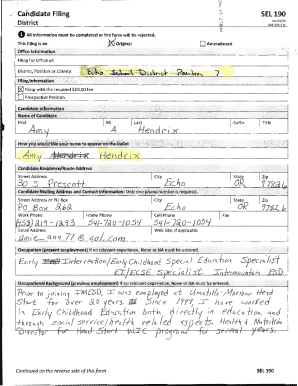 Candidate Filing
District
SEL 190
All information must be completed or the form will be rejected.
This filing is an
Original
Amendment
Office Information
Filing for Office of:
District, Position or County: Echo School District Position 7
Filing Information
Filing with the required $10.00 fee
Prospective Petition
Candidate Information
Name of Candidate
First MI Last Suffix Title
Amy A Hendrix
How you would like your name to appear on the ballot
Amy Hendrix
Candidate Residence/Route Address
Street Address City State Zip
30 S Prescott Echo OR 97826
Candidate Mailing Address and Contact Information: Only one phone number is required.
Street Address or PO Box City State Zip
PO Box 268 Echo OR 97826
Work Phone Home Phone Cell Phone Fax
541-720-1054 541-720-1054
Email Address Web Site, if applicable
Occupation (present employment) If no relevant experience, None or NA must be entered.
Early Intervention/Early Childhood Special Education Specialist
EI/ECSE Specialist Intermountain ESD
Occupational Background (previous employment) If no relevant experience, None or NA must be entered.
Prior to joining IMESD, I was employed at Umatilla-Morrow Head
Start for over 20 years. Since 1999, I have worked
in Early Childhood Education both directly in education and
through social service/health related aspects Health & Nutrition
Director for Head Start WIC program for several years.
Continued on the reverse side of this form
SEL 190